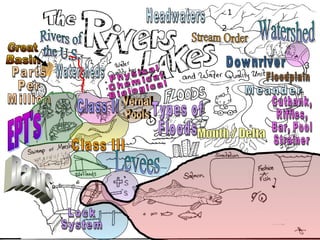 The
Rivers
Lakes
and Water Quality Unit
Headwaters
Stream Order
Watershed
Rivers of
the U.S.
Great
Basin
Parts
Per
Million
Watersheds
Physical
Chemical
Biological
Downriver
Floodplain
Meander
Cutbank,
Riffles,
Bar, Pool
Strainer
Class V
Vernal
Pools
FLOODS
Types of
Floods
Mouth / Delta
EPT's
Class III
Levees
Dams
Wetlands
+'s
-'s
Salmon
Lock
System
1
2
3